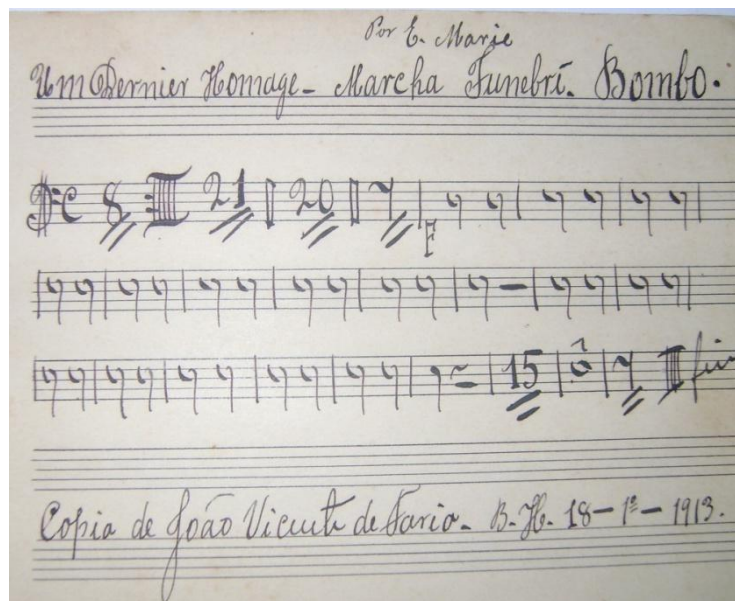 Por E. Marie
Um Dernier Homage - Marcha Funebri. Bombo.
8 21 20 7
F
15 7 fin
Copia de João Vicente de Faria - B. H. 18 - 1º - 1913.